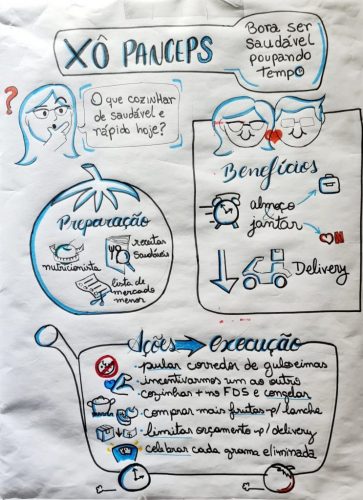 XÔ PANCEPS
Bora ser
saudável
poupando
tempo
?
O que cozinhar
de saudável e
rápido hoje?
Benefícios
almoço
&
jantar
Delivery
Preparação
nutricionista
receitas
saudáveis
lista de
mercado
menor
Ações → execução
· pular corredor de guloseimas
· incentivarmos um ao outro
cozinhar + no FDS e congelar
· comprar mais frutas p/ lanche
· limitar orçamento p/ delivery
· celebrar cada grama eliminada